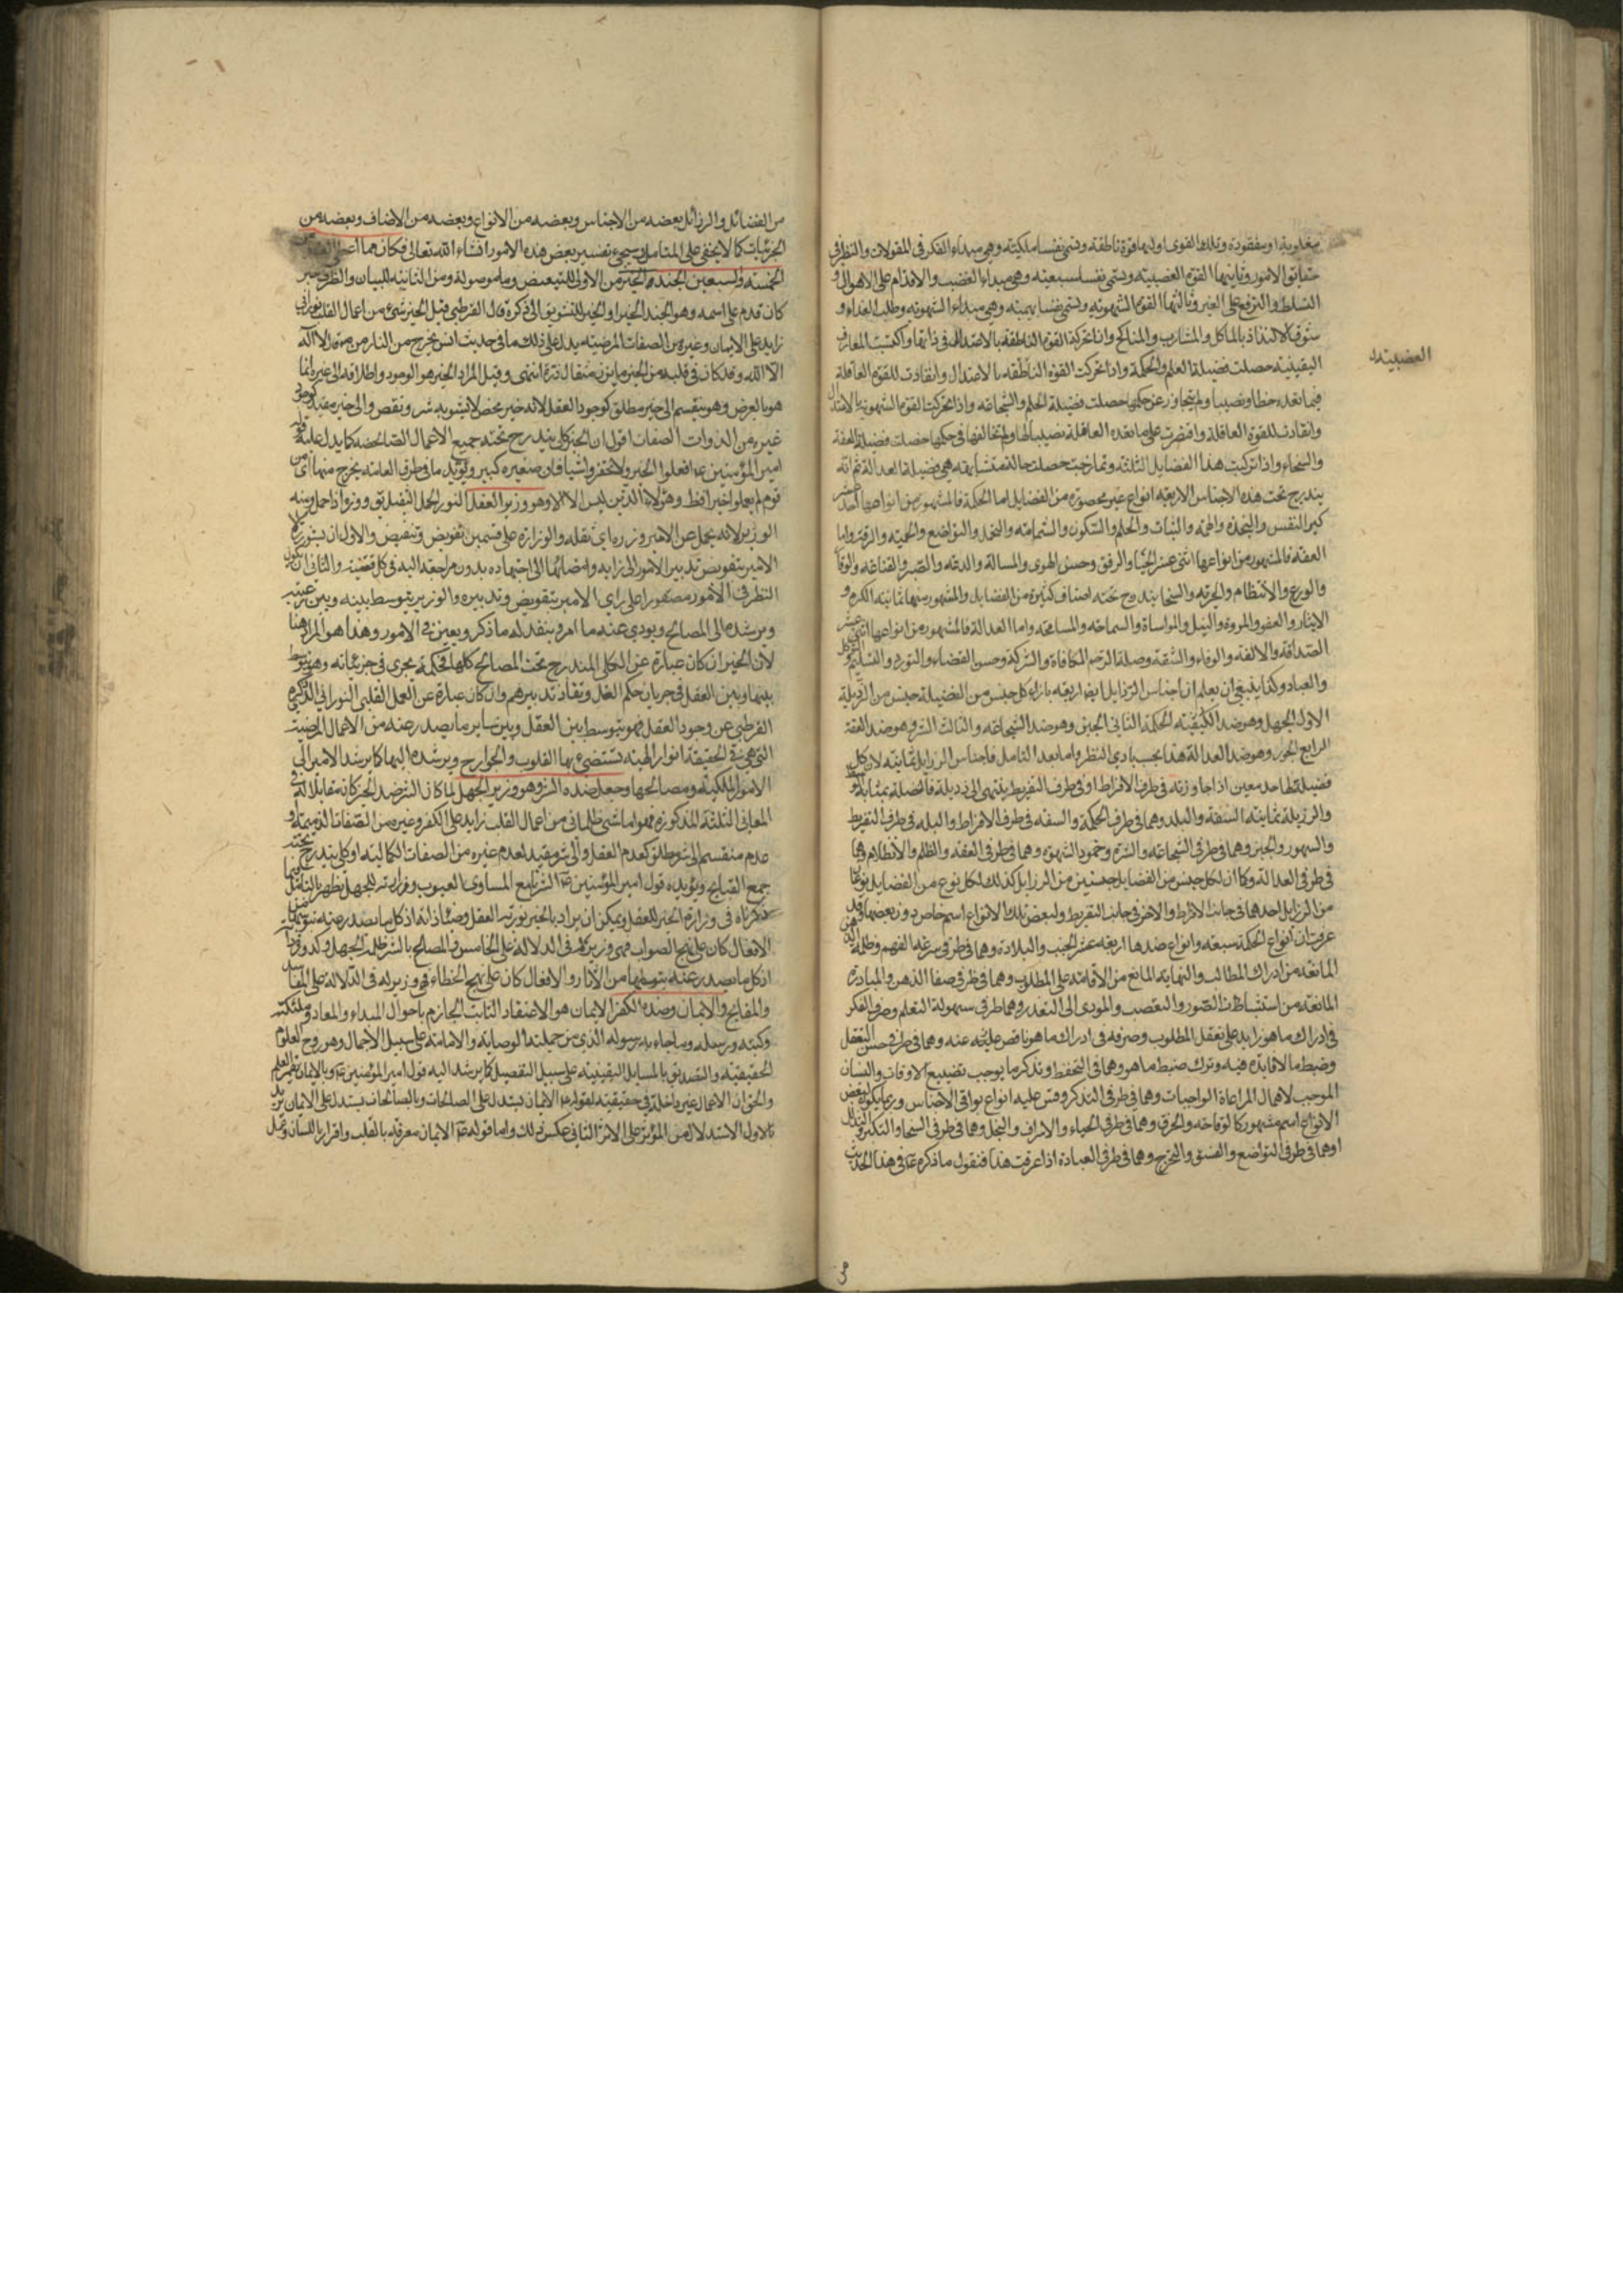 مغلوبة او مفقودة وتلك القوى اوليها قوة ناطقة وتسمى نفسا ملكية وهي مبداء الفكر في المقولات والنظر في
حقايق الامور وثانيها القوة الغضبية وتسمى نفسا سبعية وهي مبداء الغضب والاقدام على الاهوال و
التسلط والترفع على الغير وثالثها القوة الشهوية وتسمى نفسا بهيمية وهي مبداء الشهوة وطلب الغذاء و
شوق الالتذاذ بالماكل والمشارب والمناكح واذا تحركة القوة الناطقة بالاعتدال في ذاتها واكتسبت المعارف
الغضبية
اليقينية حصلت فضيلة العلم والحكمة واذا تحركت القوة الناطقة بالاعتدال وانقادت للقوة العاقلة
فيما تعده حظا ونصيبا ولم تتجاوز عن حكمها حصلت فضيلة الحلم والشجاعة واذا تحركت القوة الشهوية بالاعتدال
وانقادت للقوة العاقلة واقتصرت على ما تعده العاقلة نصيبا لها ولم تخالفها في حكمها حصلت فضيلة العفة
والسخاء واذا تركبت هذا الفضايل الثلثة وتمازجت حصلت حالة متشابهة هي فضيلة العدالة ثم انه
يندرج تحت هذه الاجناس الاربعة انواع غير محصورة من الفضايل اما الحكمة فالمشهور من انواعها
كبر النفس والنجدة والهمة والثبات والحلم والسكون والشهامة والتحمل والتواضع والحمية والرقة واما
العفة فالمشهور من انواعها اثنى عشر الحياء والرفق وحسن الهدى والمسالمة والدعة والصبر والقناعة والوقار
والورع والانتظام والحرية والسخا يندرج تحته اصناف كثيرة من الفضايل والمشهور منها ثمانية الكرم و
الايثار والعفو والمروة والنيل والمواساة والسماحة والمسامحة واما العدالة فالمشهور من انواعها اثنى عشر
الصداقة والالفة والوفاء والشفقة وصلة الرحم المكافاة والشركة وحسن القضاء والتودد والتسليم والتوكل
والعباد وكذا ينبغي ان يعلم ان اجناس الرذايل ايضا اربعة بازاء كل جنس من الفضيلة جنس من الرذيلة
الاول الجهل وهو ضد الحكمة الثاني الجبن وهو ضد الشجاعة والثالث الشره وهو ضد العفة
الرابع الجور وهو ضد العدالة هذا بحسب بادي النظر واما بعد التامل فاجناس الرذايل ثمانية لان كل
فضيلة لها حد معين اذا جاوزته في طرف الافراط او في طرف التفريط ينتهى الى رذيلة فالفضلة بمثابة
والرذيلة ثمانية السفه والبله وهما في طرف الحكمة والسفه في طرف الافراط والبله في طرف التفريط
والتهور والجبن وهما في طرفي الشجاعة والشره وخمود الشهوة وهما في طرفي العفة والظلم والانظلام وهما
في طرفي العدالة وكما ان لكل جنس من الفضايل جنسين من الرذايل كذلك لكل نوع من الفضايل نوعان
من الرذايل احدهما في جانب الافراط والاخر في جانب التفريط ولبعض تلك الانواع اسم خاص دون بعضها وقد
عرفت ان انواع الحكمة سبعة وانواع ضدها اربعة عشر الخبث والبلادة وهما في طرفي سرعة الفهم وظلمة
المانعة من ادراك المطالب والنهاية المانع من الاقامة على المطلوب وهما في طرفي صفا الذهن والمبادرة
المانعة من استنباط الصور والتعصب والمودى الى التعذر وهما طرفي سهولة التعلم وصرف الفكر
في ادراك ما هو زايد على تعقل المطلوب وصرفه في ادراك ما هو ناقص عنه وهما في طرفي حسن التعقل
وضبط ما لا فايدة فيه وترك ضبط ما هو وهما في التحفظ وتذكر ما يوجب تضييع الاوقات والنسيان
الموجب لاهمال المراعاة الواجبات وهما في طرفي التذكر وقس عليه انواع بواقى الاجناس وربما يكون لبعض
الانواع اسم مشهور كالوقاحة والخرق وهما في طرفي الحياء والاسراف والبخل وهما في طرفي السخا والتكبر والتذلل
وهما في طرفي التواضع والفسق والتحرج وهما في طرفي العبادة اذا عرفت هذا فنقول ما ذكره ع في هذا الحديث
من الفضائل والرذائل بعضه من الاجناس وبعضه من الانواع وبعضه من الاصناف وبعضه من
الجزئيات كما لا يخفى على المتامل وسيجيء تفسير بعض هذه الامور انشاء الله تعالى فكان مما اعطى العقل من
الخمسة والسبعين الجند الخير من الاولى للتبعيض وما موصولة ومن الثانية للبيان والظرف خبر
كان قدم على اسمه وهو الجند الخير او الخير للتشويق الى ذكره قال القرطبي قيل الخير شيء من اعمال القلب نوراني
زايد على الايمان وغيره من الصفات المرضية يدل على ذلك ما في حديث انس يخرج من النار من قال لا اله
الا الله وكان في قلبه من الخير ما يزن مثقال ذرة انتهى وقيل المراد الخير هو الوجود واطلاقه الى غيره انما
هو بالعرض وهو ينقسم الى خير مطلق كوجود العقل لانه خير محض لا يشوبه شر ونقص والى خير مقيد كوجود
غيره من الذوات الصفات اقول ان الخير كلي يندرج تحته جميع الاعمال الصالحة كما يدل عليه قول
امير المؤمنين ع افعلوا الخير ولا تحقروا شيئا فان صغيره كبير ويؤيده ما في طرف العامة يخرج منها
قوم لم يعملوا خيرا قط وهؤلاء الذين ليس لا الا وهو وزير العقل النور الحمل الثقيل ووزر اذا حمل ومنه
الوزير لانه يحمل عن الامير وزره اي ثقله والوزارة على قسمين تفويض وتنفيض والاول ان يستوزر
الامير بتفويض تدبير الامور الى رايه وامضائها الى اجتهاده بدون مراجعة اليه في كل قضية والثاني ان يكون
النظر في الامور مقصورا على راى الامير بتفويض وتدبيره والوزير يتوسط بينه وبين رعيته
ويرشده الى المصالح ويودي عنه ما امر وينفذ له ما ذكر ويعين في الامور وهذا هو المراد هنا
لان الخير ان كان عبارة عن الكلي المندرج تحت المصالح كلها فحكمه يجري في جزئياته وهو متوسط
بينها وبين العقل في جريان حكم العقل ونفاذ تدبيرهم وان كان عبارة عن العمل القلبي النوراني الذي ذكره
القرطبي عن وجود العقل فهو يتوسط بين العقل وبين ساير ما يصدر عنه من الاعمال المرضية
التي هي في الحقيقة انوار الهية تستضيء بها القلوب والجوارح ويرشده اليها كما يرشد الامير الى
الامور الملكية ومصالحها وجعل ضده الشر وهو وزير الجهل لما كان الشر ضد الخير كان مقابلا له في
المعاني الثلثة المذكورة فهو اما شيء ظلماني من اعمال القلب زايد على الكفر وغيره من الصفات الذميمة او
عدم منقسم الى شر مطلق كعدم العقل والى شر مقيد لعدم غيره من الصفات الكمالية او كلي يندرج تحته
جميع القبايح ويؤيده قول امير المؤمنين ع الشر جامع المساوى العيوب ووزارته للجهل يظهر بالتامل فيما
ذكرناه في وزارة الخير للعقل ويمكن ان يراد بالخير نورية العقل وصفاء ذاته اذ كل ما يصدر عنه بتوسطها من
الافعال كان على نهج الصواب فهي وزير له في الدلالة على المصالح بالشر ظلمة الجهل وكدورة
اذ كل ما يصدر عنه بتوسطها من الآثار والافعال كان على نهج الخطاء في وزير له في الدلالة على المفاسد
والمقابح والايمان وضده الكفر الايمان هو الاعتقاد الثابت الجازم باحوال المبداء والمعاد وملئكته
وكتبه ورسله وما جاء به رسوله الذي من جملتها الوصاية والامامة على سبيل الاجمال وهو روح العلوم
الحقيقية والتصديق بالمسايل اليقينية على سبيل التفصيل كما يرشد اليه قول امير المؤمنين ع وبالايمان يعمر العلم
والحق ان الاعمال غير داخلة في حقيقته لقوله ع الايمان يستدل على الصالحات وبالصالحات يستدل على الايمان
بالاول الاستدلال من المؤثر على الاثر الثاني عكس ذلك واما قوله ع الايمان معرفة بالقلب واقرار باللسان وعمل